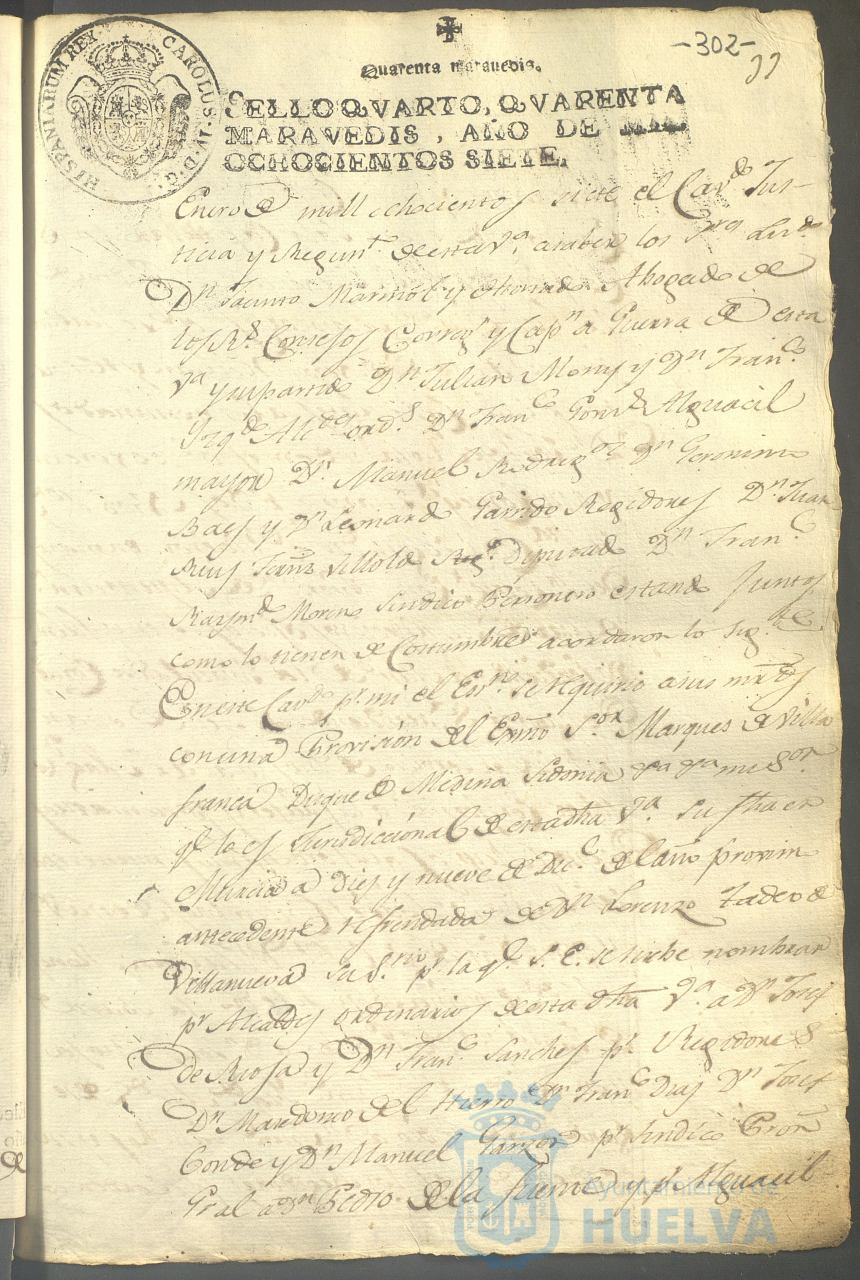 -302-
Quarenta maravedis.
HISPANIARUM REX CAROLUS IV D G
SELLO QVARTO, QVARENTA
MARAVEDIS, AÑO DE MIL
OCHOCIENTOS SIETE.
Enero de mill ochocientos siete el Cavdo Jus-
ticia y Regimto de esta Va, a saber los Sres Licdo
Dn Jacinto Marmol y Abogado de
los Rs Consejos Corregr y Capn a Guerra de esta
Va y su partido Dn Julian y Dn Franco
Alcdes ords Dn Franco Alguacil
mayor Dn Manuel Rodrigz Dn Geronimo
Baes y Dn Leonardo Garrido Regidores Dn Juan
Diputado Dn Franco
Raymdo Moreno Sindico Personero estando juntos
como lo tienen de Costumbre acordaron lo sigte
En este Cavdo pr mi el Esno se requirio a sus mrdes
con una Provision del Exmo Sor Marques de Villa
franca Duque de Medina Sidonia mi Sor
qe lo es Jurisdiccional de esta dha Va su fha en
Murcia a Diez y nueve de Dice del año proximo
antecedente refrendada de Dn Lorenzo Tadeo de
Villanueva su Srio pr la qe S. E. se sirbe nombrar
pr Alcaldes ordinarios de esta dha Va a Dn Josef
de Rioja y Dn Franco Sanches pr Regidores
Dn Macedonio del Hierro Dn Franco Dias Dn Josef
Conde y Dn Manuel Garzon pr Sindico Pror
Gral a Dn Pedro de la Fuente y pr Alguacil
Ayuntamiento de
HUELVA